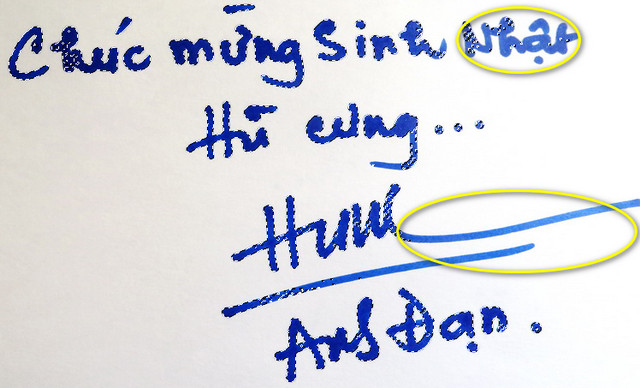 Chúc mừng Sinh Nhật
Hữ cưng...
Anh Đạn.